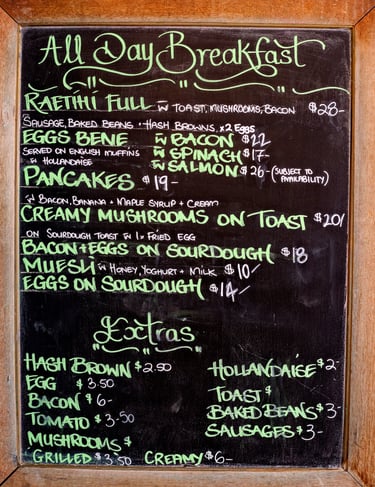 All Day Breakfast
RAETIHI FULL W TOAST, MUSHROOMS, BACON $28-
SAUSAGE, BAKED BEANS + HASH BROWNS, x2 EGGS
EGGS BENE W BACON $22
SERVED ON ENGLISH MUFFINS W SPINACH $17-
W HOLLANDAISE W SALMON $26-(SUBJECT TO AVAILABILITY)
PANCAKES $19-
W BACON, BANANA + MAPLE SYRUP + CREAM
CREAMY MUSHROOMS ON TOAST $20/
ON SOURDOUGH TOAST W 1x FRIED EGG
BACON+EGGS ON SOURDOUGH $18
MUESLI W HONEY, YOGHURT + MILK $10/
EGGS ON SOURDOUGH $14/
Extras
HASH BROWN $2.50 HOLLANDAISE $2-
EGG $3.50 TOAST $
BACON $6- BAKED BEANS $3-
TOMATO $3.50 SAUSAGES $3-
MUSHROOMS $
GRILLED $3.50 CREAMY $6-